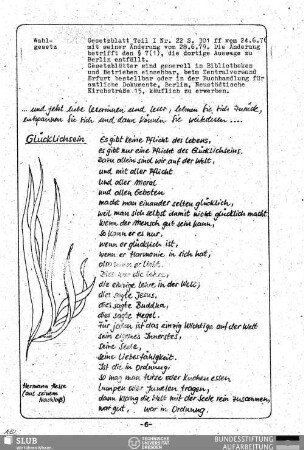 Wahl-
gesetz
Gesetzblatt Teil I Nr. 22 S. 301 ff vom 24.6.76
mit seiner Änderung vom 28.6.79. Die Änderung
betrifft den § 7(1), die dortige Aussage zu
Berlin entfällt.
Gesetzblätter sind generell in Bibliotheken
und Betrieben einsehbar, beim Zentralversand
Erfurt bestellbar oder in der Buchhandlung für
amtliche Dokumente, Berlin, Neustädtische
Kirchstraße 15, käuflich zu erwerben.
... und jetzt liebe Leserinnen und Leser, lehnen Sie sich zurück,
entspannen Sie sich und dann können Sie weiterlesen ....
Glücklichsein
Es gibt keine Pflicht des Lebens,
es gibt nur eine Pflicht des Glücklichseins.
Dazu allein sind wir auf der Welt,
und mit aller Pflicht
und aller Moral
und allen Geboten
macht man einander selten glücklich,
weil man sich selbst damit nicht glücklich macht.
Wenn der Mensch gut sein kann,
so kann er es nur,
wenn er glücklich ist,
wenn er Harmonie in sich hat,
also wenn er liebt.
Dies war die Lehre,
die einzige Lehre in der Welt;
dies sagte Jesus,
dies sagte Buddha,
dies sagte Hegel.
Für jeden ist das einzig Wichtige auf der Welt
sein eigenes Innerstes,
seine Seele,
seine Liebesfähigkeit.
Ist die in Ordnung,
so mag man Hirse oder Kuchen essen
Lumpen oder Juwelen tragen,
dann klang die Welt mit der Seele rein zusammen,
war gut, war in Ordnung.
Hermann Hesse
(aus seinem
Nachlaß)
-6-
SLUB
Wir führen Wissen.
TECHNISCHE
UNIVERSITÄT
DRESDEN
BUNDESSTIFTUNG
AUFARBEITUNG